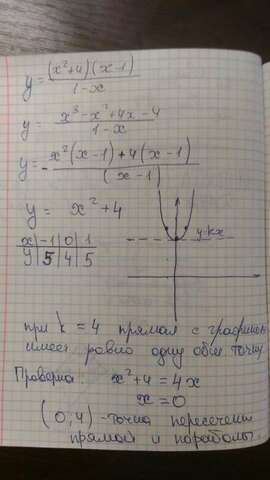 y = (x²+4)(x-1) / 1-x
y = x³-x²+4x-4 / 1-x
y = - x²(x-1)+4(x-1) / (x-1)
y = x²+4
y=kx
x | -1 | 0 | 1
y | 5 | 4 | 5
при k = 4 прямая с графиком
имеет ровно одну общ. точку
Проверка: x²+4 = 4x
x = 0
(0;4) - точка пересечения
прямой и параболы.